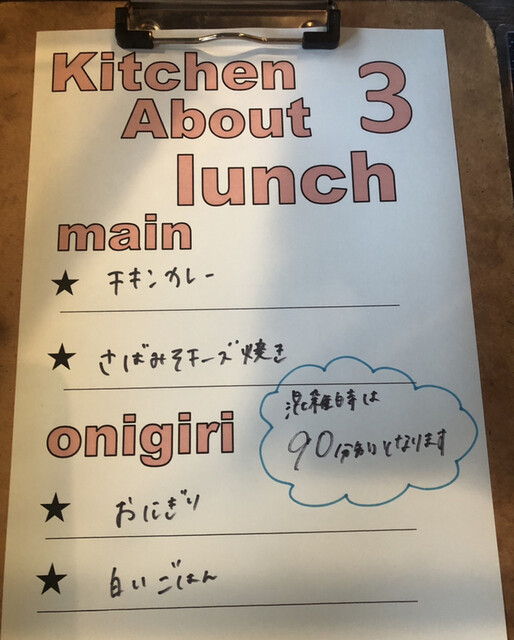 Kitchen
About 3
lunch
main
★ チキンカレー
★ さばみそチーズ焼き
onigiri
混雑時は
90分制となります
★ おにぎり
★ 白いごはん